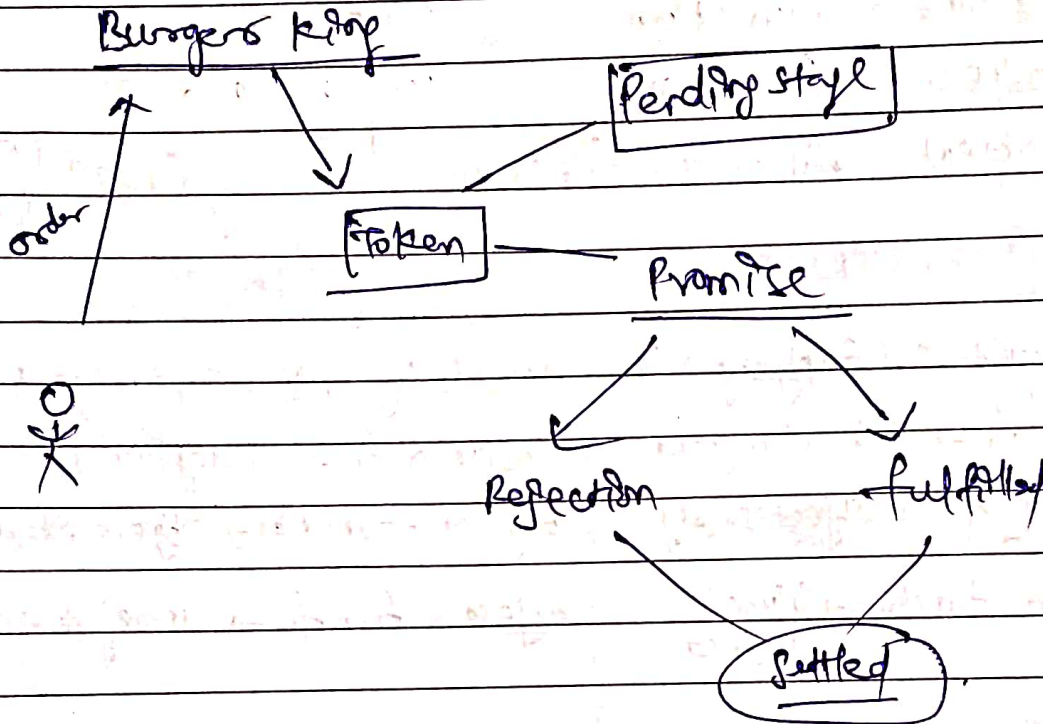 Burger King
Pending stage
order
Token
Promise
Rejection
fulfilled
Settled